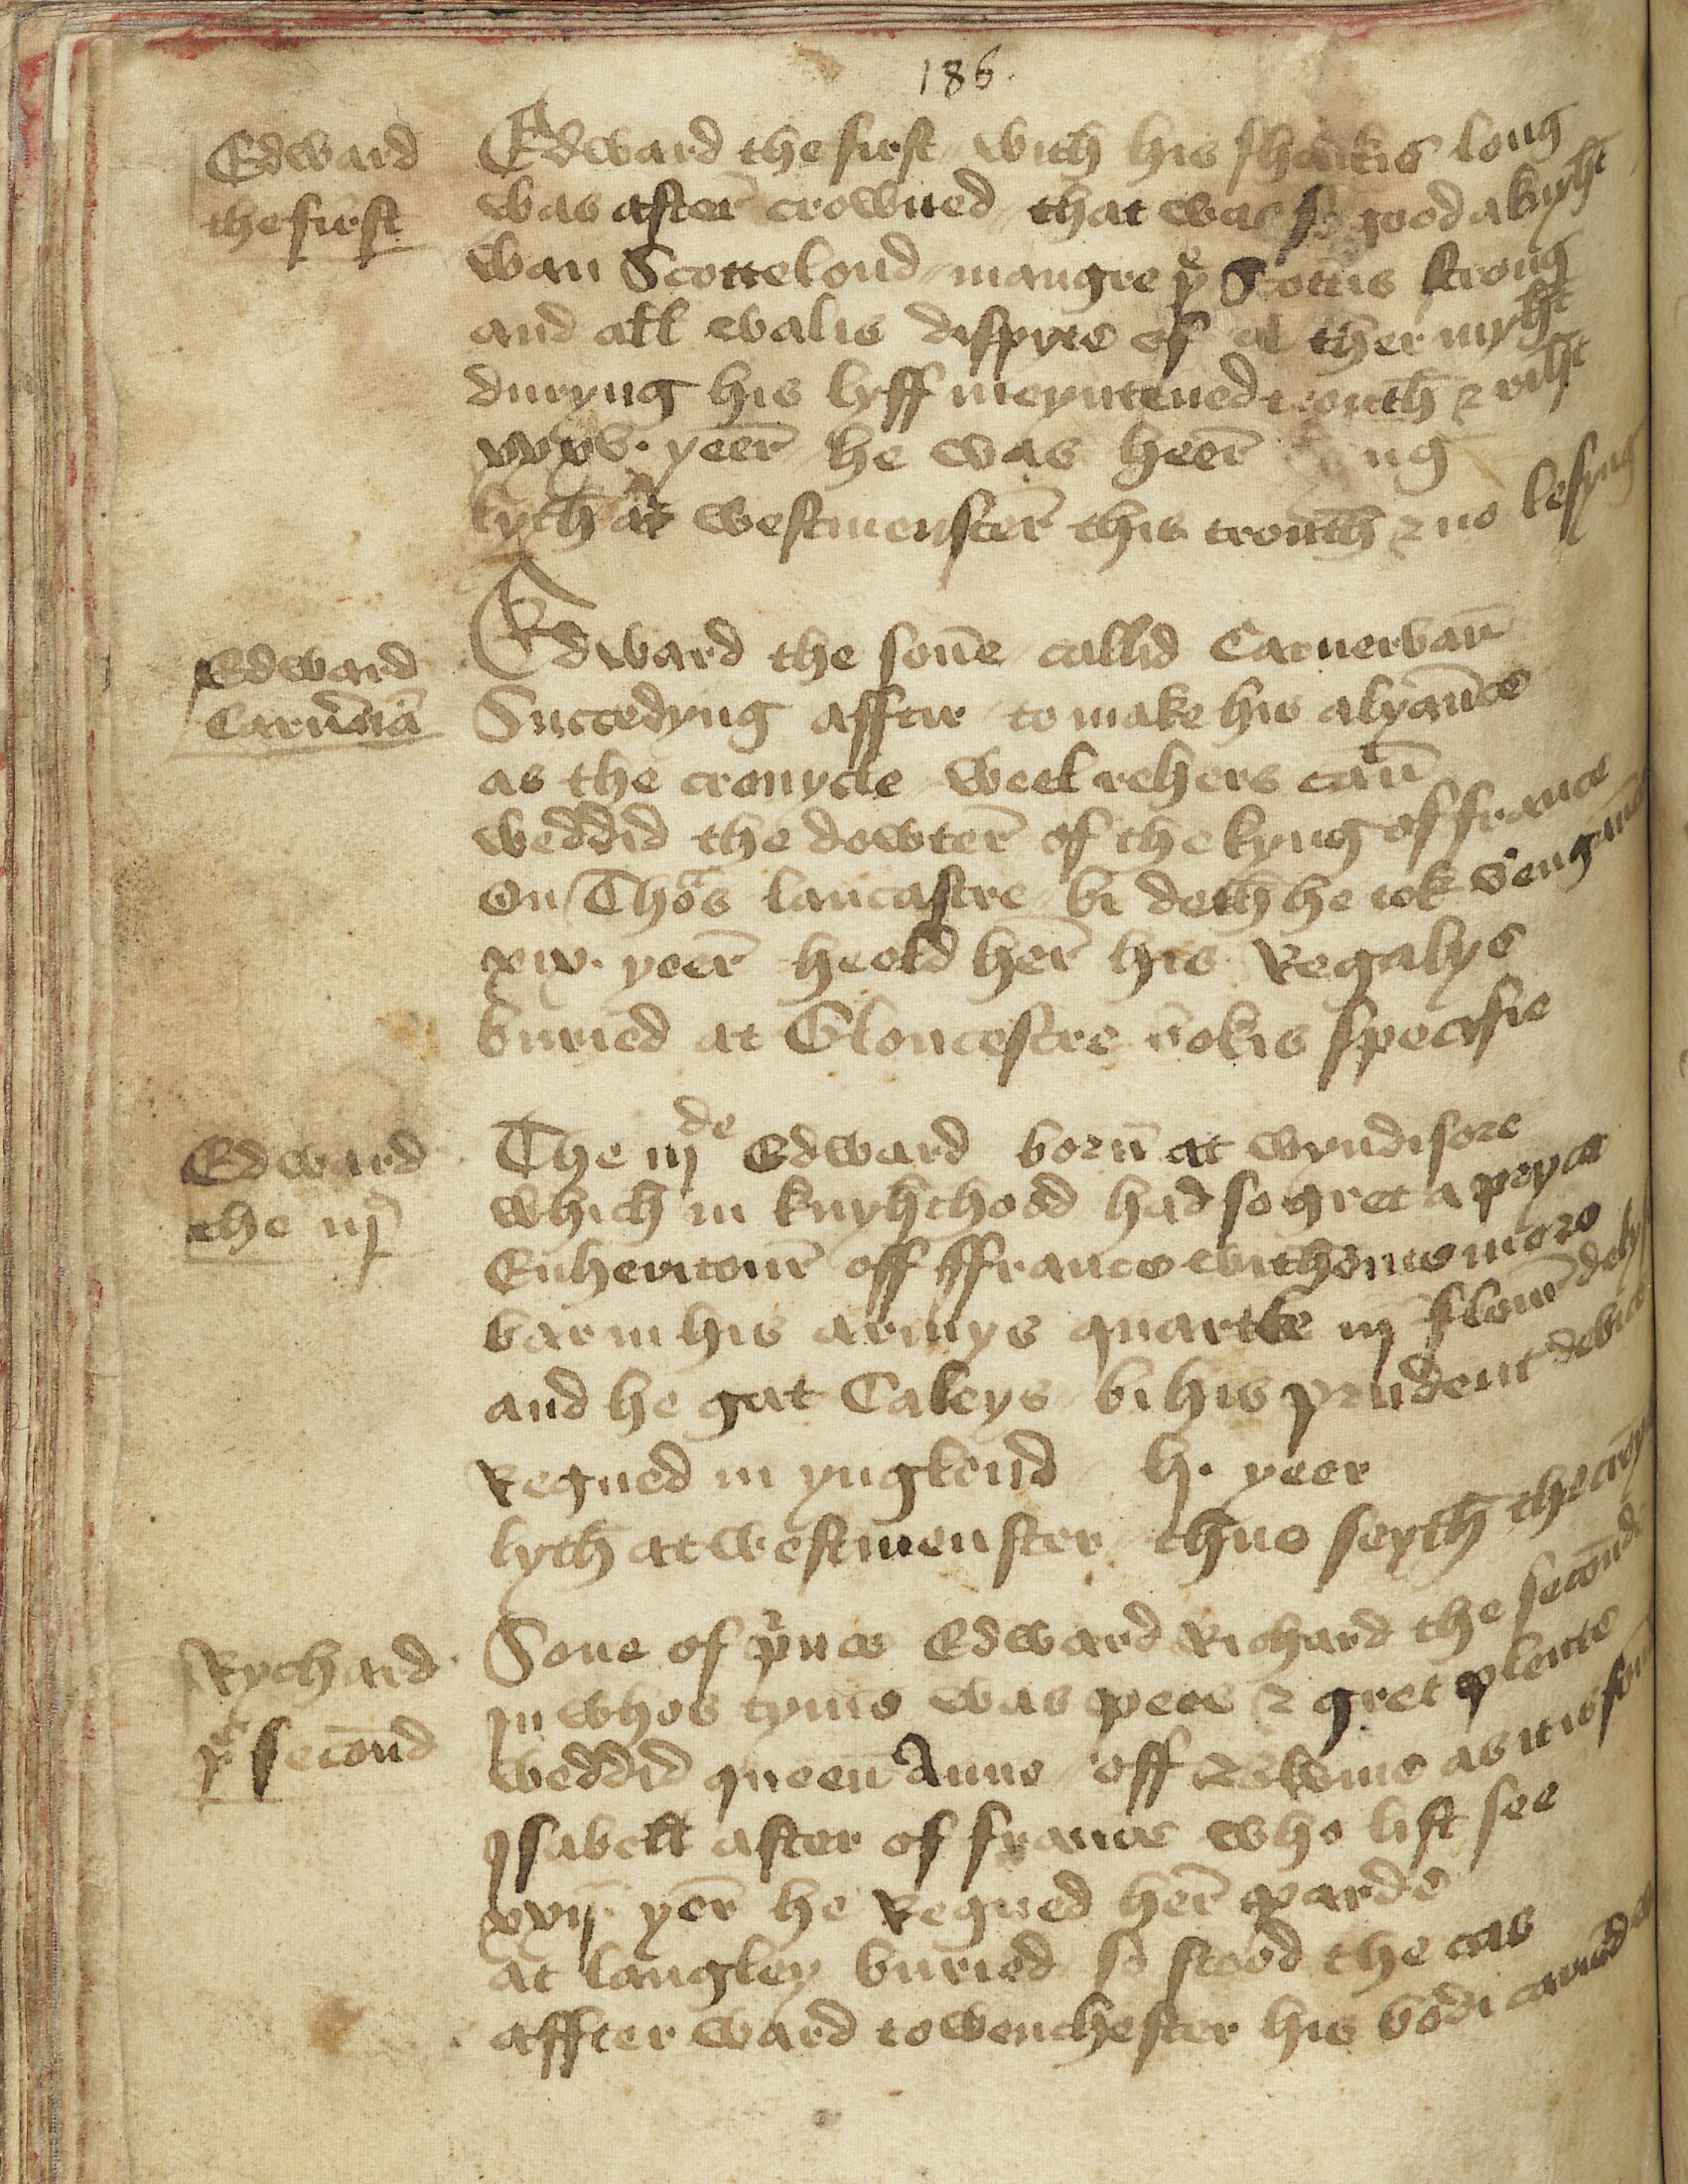 186.
Edward
the first
Edward the first with his shankis long
was after crowned that was so good a knyht
wan Scottelond maugre yͤ Scottis strong
and all walis dispyte of al ther myht
duryng his lyff meyntened trouth & riht
xxxv. yeer he was heer ng
lyth at westmenster this trouth & no lesyng
Edward
Carnͬviā
Edward the son̄e callid Carnervan̄
Succedyng afftir to make his alyan̄ce
as the cronycle weel rehers can̄
weddid the dowter of the kyng of france
On Thoᵃs lancastre bi deth he tok vengan̄ce
xix. yeer heeld her his Regalye
buried at Gloucestre bokis specifie
Edward
the iij
The iijᵈᵉ Edward born̄ at wyndisore
which in knyhthood had so gret a prys
Enheritour off ffrance withoute more
bar in his armys quartle iij flour delys
and he gat Caleys bi his prudent devise
Regned in ynglond lj. yeer
lyth at westmenster thus seyth the
Rychard
yͤ secōnd
Sone of pͥnce Edward Richard the secōnde
in whos tyme was pees & gret plente
weddid queen̄ Anne off as it is
Isabell after of france who list see
xxij. yer he Regned her parde
at langley buried so stood the cas
affter ward to wenchester his bodi caried